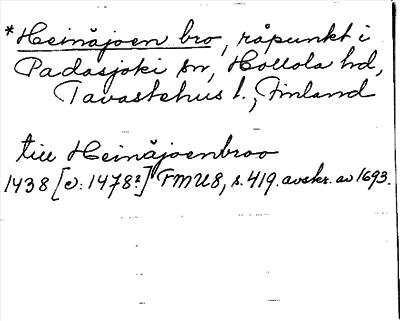 *Heinäjoen bro, råpunkt i
Padasjoki sn, Hollola hd,
Tavastehus l., Finland
till Heinäjoenbroo
1438 [o: 1478?] FMU 8, s. 419. avskr. av 1693.